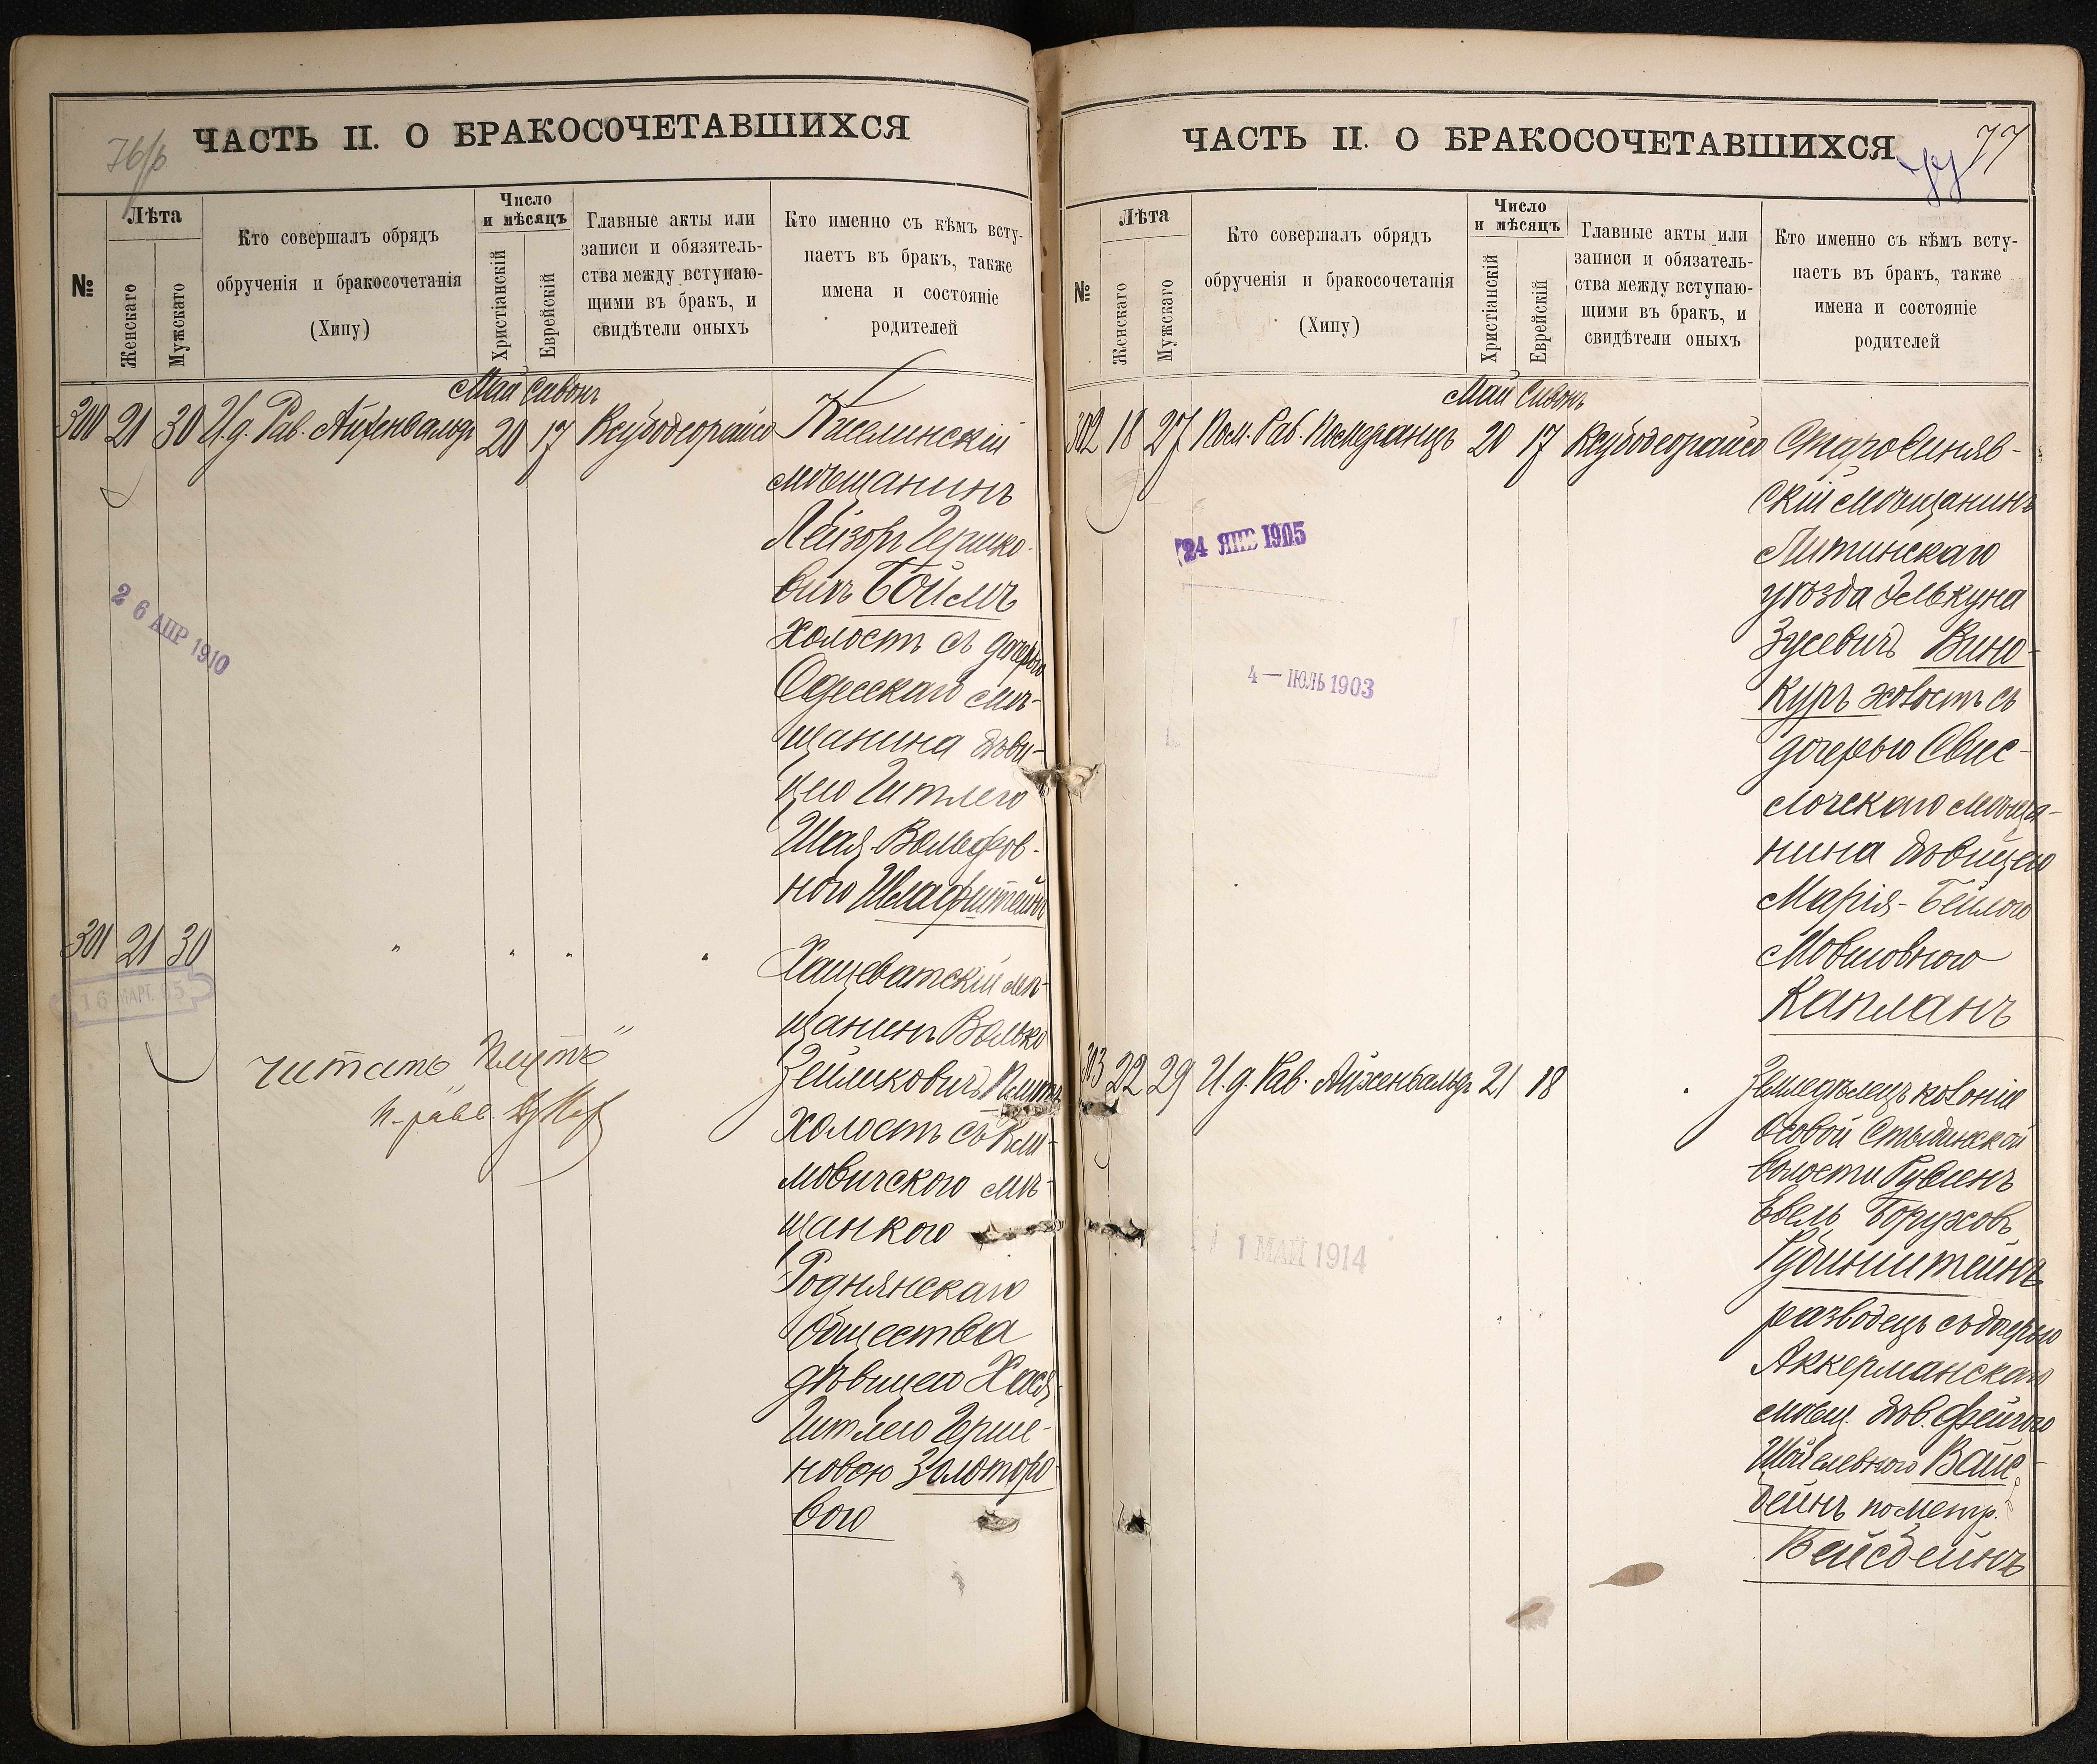 76/б
ЧАСТЬ II. О БРАКОСОЧЕТАВШИХСЯ
№
Лѣта
Женскаго
Мужскаго
Кто совершалъ обрядъ
обрученія и бракосочетанія
(Хипу)
Число
и мѣсяцъ
Христіанскій
Еврейскій
Главные акты или
записи и обязятель-
ства между вступаю-
щими въ бракъ, и
свидѣтели оныхъ
Кто именно съ кѣмъ всту-
паетъ въ бракъ, также
имена и состояніе
родителей
Май Сивонъ
300 21 30 И.д. Рав. Айхенвальдъ 20 17 Ксубодеорайсо
мѣщанинъ
Лейзоръ Гершко-
вичъ Боймъ
холостъ съ дочерью
Одесскаго мѣ-
щанина дѣви-
цею Гитлею
Шая-Вольфов-
ною
26 АПР 1910
301 21 30 " " " "
Хащеватскій мѣ-
щанинъ Волько
Зейликовичъ
холостъ съ Кли-
мовичского мѣ-
щанкою
Роднянскаго
общества
дѣвицею Хася
Гитлею Герше-
новою Золоторе-
вою
16 МАРТ. 05
читать
ЧАСТЬ II. О БРАКОСОЧЕТАВШИХСЯ
77
77
№
Лѣта
Женскаго
Мужскаго
Кто совершалъ обрядъ
обрученія и бракосочетанія
(Хипу)
Число
и мѣсяцъ
Христіанскій
Еврейскій
Главные акты или
записи и обязатель-
ства между вступаю-
щими въ бракъ, и
свидѣтели оныхъ
Кто именно съ кѣмъ всту-
паетъ въ бракъ, также
имена и состояніе
родителей
Май Сивонъ
302 18 27 Пом. Рав. Померанцъ 20 17 Ксубодеорайсо
Старосиняв-
скій мѣщанинъ
Литинскаго
уѣзда Элькуна
Зусевичъ Вино-
куръ холостъ съ
дочерью Свис-
лочскаго мѣща-
нина дѣвицею
Марія-Бейлою
Мовшовною
Капланъ
24 ЯНВ 1905
4 — ІЮЛЬ 1903
303 22 29 И.д. Рав. Айхенвальдъ 21 18
Земледѣлецъ колоніи
волости Рувенъ
Евель Боруховъ
Рубинштейнъ
разводецъ съ дочерью
Аккерманскаго
мѣщ. дѣв. Фейгою
Вайс-
бейнъ по метр.
Вейсбейнъ
1 МАЙ 1914